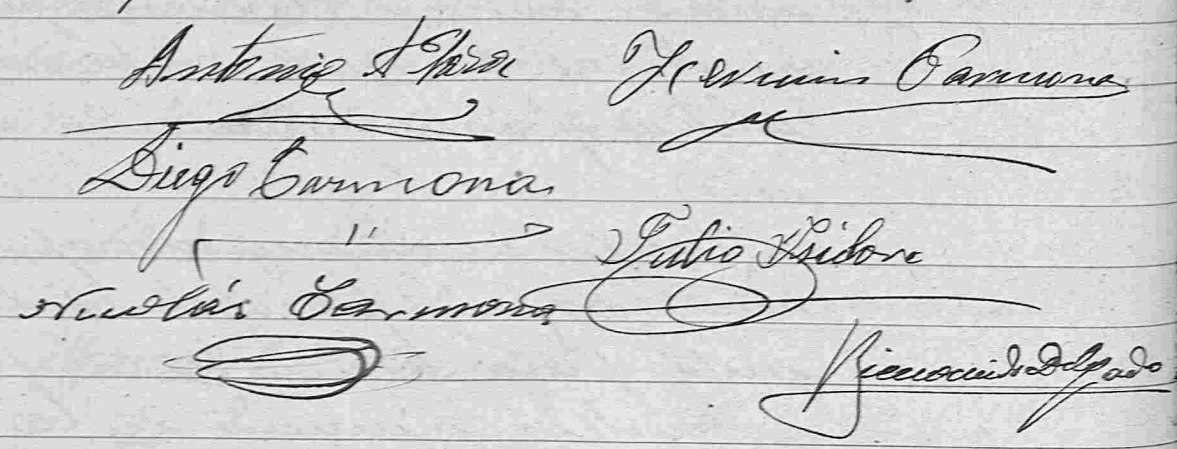 Antonio
Carmona
Diego Carmona
Julio Isidore
Nicolás Carmona
Bienvenido Delgado